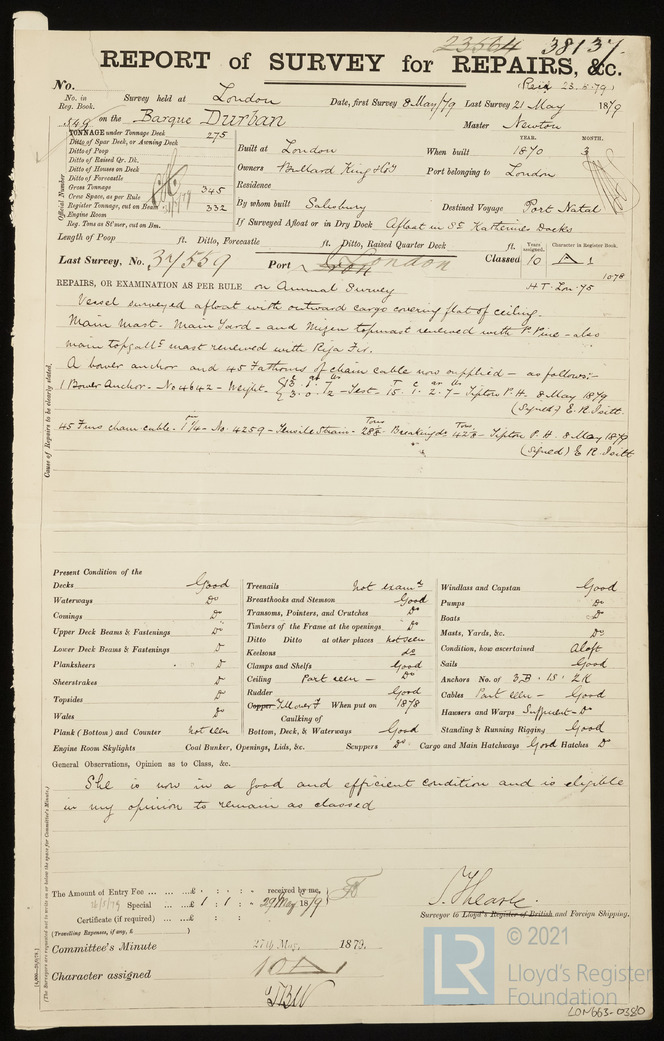 23564 38137.
REPORT of SURVEY for REPAIRS, &c.
No. Rec'd 23.5.79
No. in Reg. Book. Survey held at London Date, first Survey 8 May/79 Last Survey 21 May 1879
549 on the Barque Durban Master Newton
TONNAGE under Tonnage Deck 275
Ditto of Spar Deck, or Awning Deck
Ditto of Poop
Ditto of Raised Qr. Dk.
Ditto of Houses on Deck
Ditto of Forecastle
Gross Tonnage 345
Crew Space, as per Rule
Register Tonnage, cut on Beam 332
Engine Room
Reg. Tons as St'mer, cut on Bm.
Official Number
YEAR. MONTH.
Built at London When built 1870 3
Owners Bullard King & Co Port belonging to London
Residence
By whom built Salisbury Destined Voyage Port Natal
If Surveyed Afloat or in Dry Dock Afloat in St Katherine Docks
Length of Poop ft. Ditto, Forecastle ft. Ditto, Raised Quarter Deck ft.
Years assigned. Character in Register Book.
Last Survey, No. 37559 Port London Classed 10 A 1
1078
REPAIRS, OR EXAMINATION AS PER RULE on Annual Survey HT. Lon. 75
Vessel surveyed afloat with outward cargo covering flat of ceiling.
Main Mast - Main Yard - and Mizen topmast renewed with P. Pine - also
main topgallt mast renewed with Riga Fir.
A bower anchor and 45 Fathoms of chain cable now supplied - as follows:-
1 Bower Anchor - No 4642 - Weight. - Test - 15. 1. 2. 7 - Tipton P.H. 8 May 1879
(Signed) E. R. Isitt.
45 Fms chain cable. 1 1/4 - No. 4259 - Tensile Strain - 28 - Breaking do 42 - Tipton P.H. 8 May 1879
(Signed) E R. Isitt
Cause of Repairs to be clearly stated.
Present Condition of the
Decks Good
Waterways Do
Comings Do
Upper Deck Beams & Fastenings Do
Lower Deck Beams & Fastenings D
Planksheers D
Sheerstrakes D
Topsides D
Wales D
Plank (Bottom) and Counter Not seen
Engine Room Skylights Coal Bunker, Openings, Lids, &c. Scuppers Do Cargo and Main Hatchways Good Hatches D
Treenails not examd
Breasthooks and Stemson Good
Transoms, Pointers, and Crutches Do
Timbers of the Frame at the openings Do
Ditto Ditto at other places not seen
Keelsons do
Clamps and Shelfs Good
Ceiling Part seen - Do
Rudder Good
Copper When put on 1878
Caulking of
Bottom, Deck, & Waterways Good
Windlass and Capstan Good
Pumps Do
Boats D
Masts, Yards, &c. Do
Condition, how ascertained Aloft
Sails Good
Anchors No. of 3 B. 1 S. 2 K
Cables Part seen - Good
Hawsers and Warps Sufficient - Do
Standing & Running Rigging Good
General Observations, Opinion as to Class, &c.
She is now in a good and efficient condition and is eligible
in my opinion to remain as classed
The Amount of Entry Fee ... ... ... £ : : received by me,
Special ... ... £ 1 : 1 : 29 May 1879
Certificate (if required) ... £ : :
(Travelling Expenses, if any, £ )
Surveyor to Lloyd's Register of British and Foreign Shipping.
Committee's Minute 27th May, 1879.
Character assigned 10 A 1
(The Surveyors are requested not to write on or below the space for Committee's Minute.)
© 2021
LR
Lloyd's Register
Foundation
LON663-0380